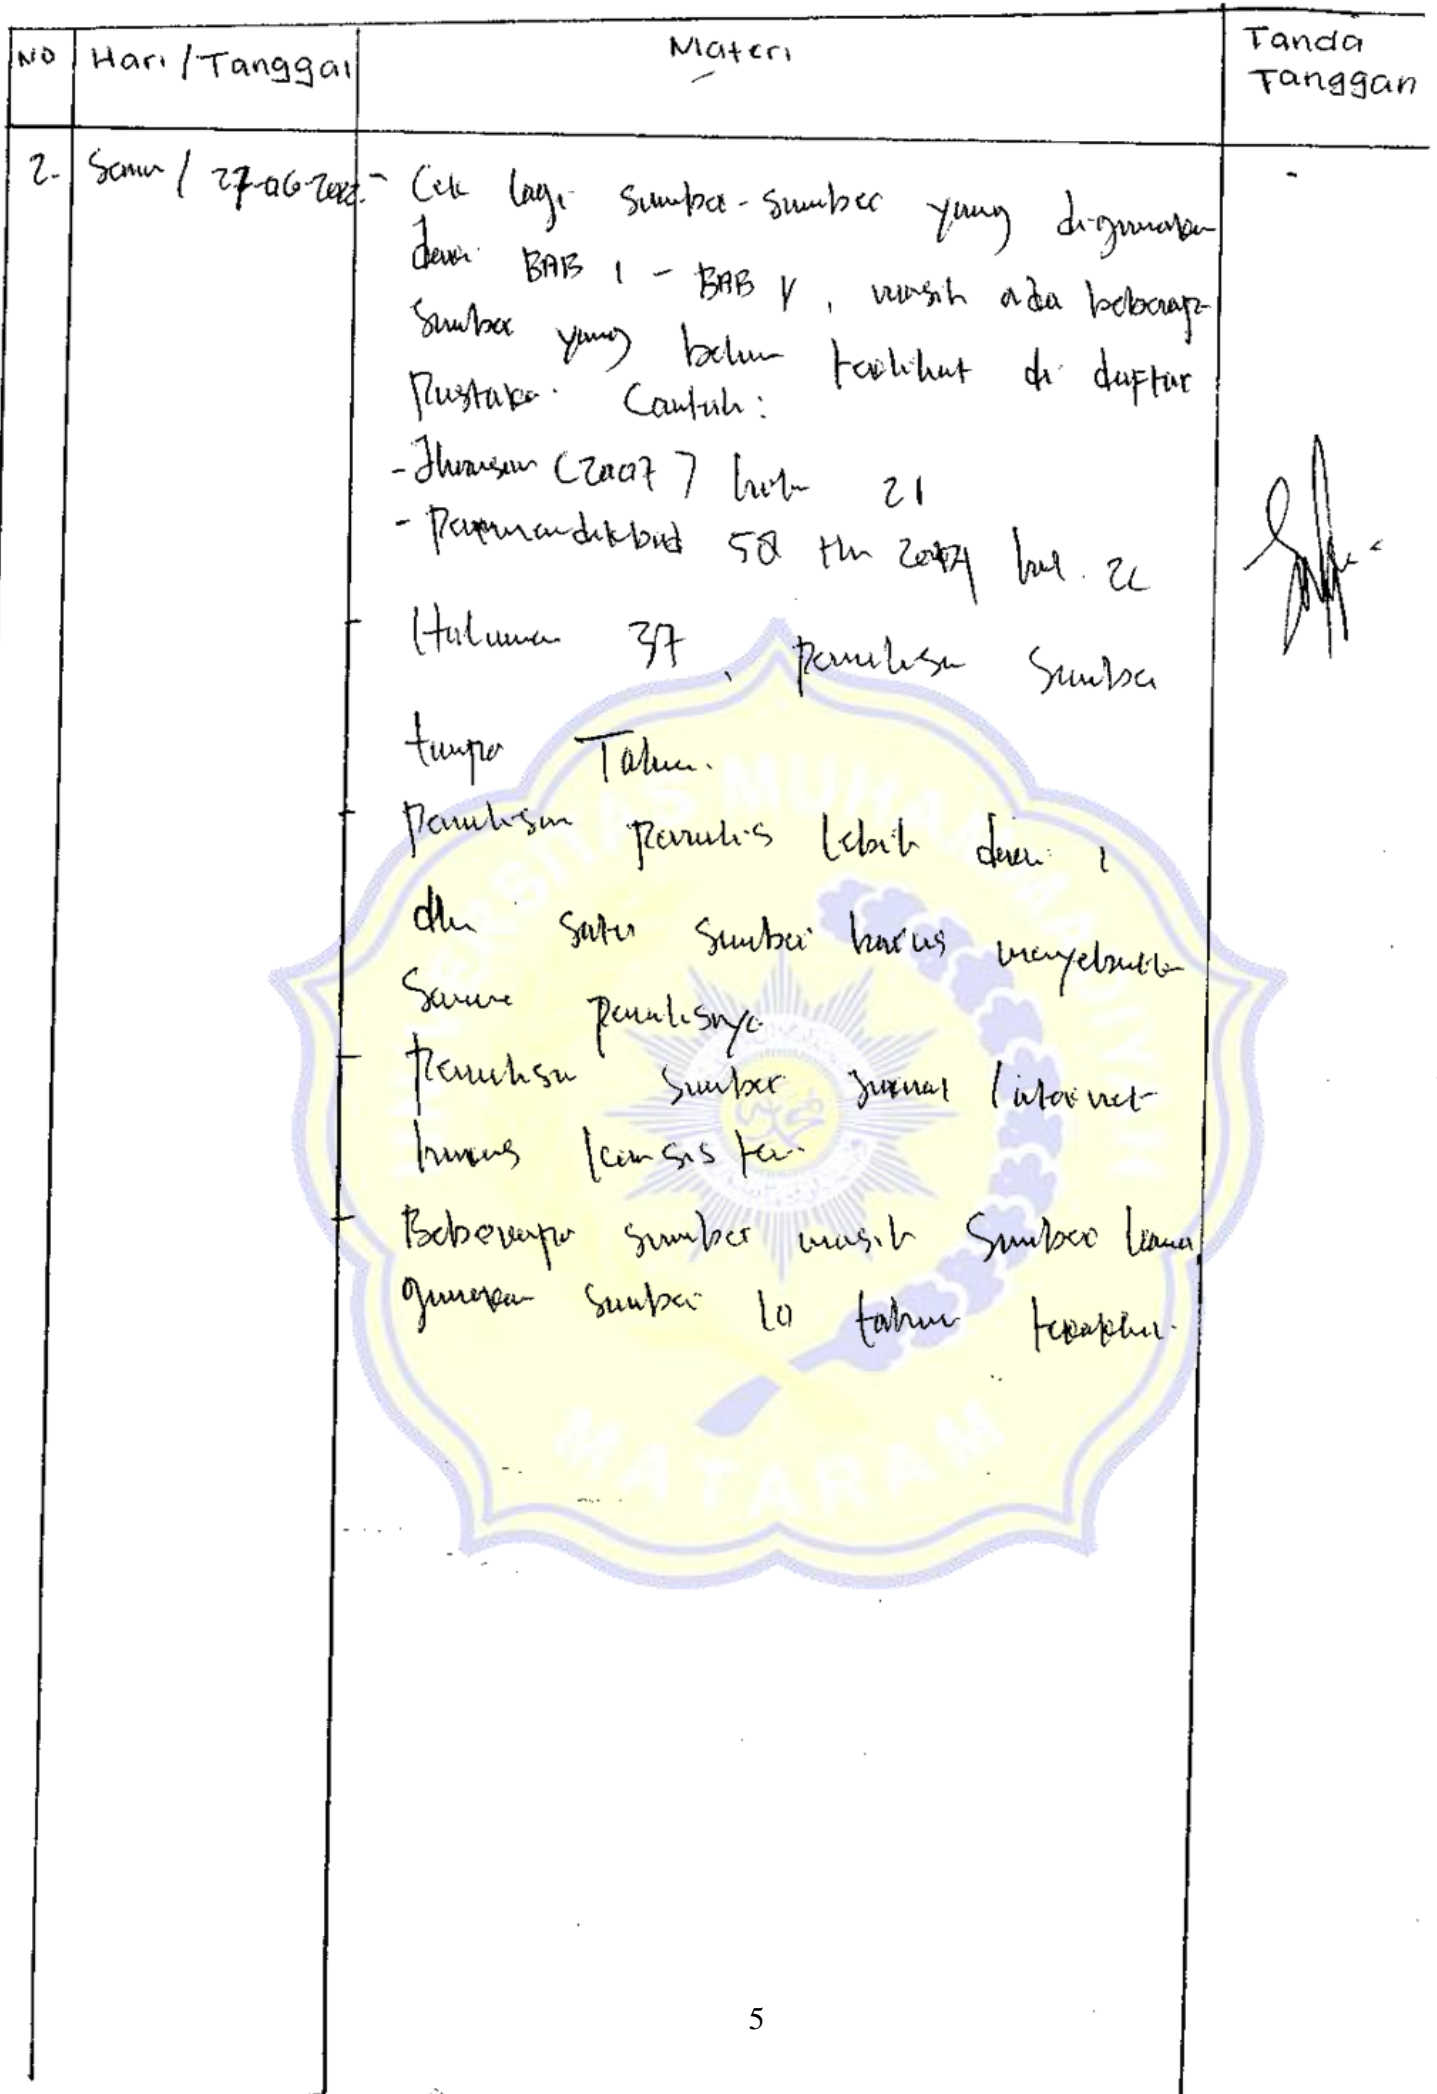 NO Hari / Tanggal Materi Tanda Tanggan
2. Senin / 27-06-2022 - Cek lagi sumber-sumber yang digunakan
dari BAB I - BAB V, masih ada beberapa
sumber yang belum terlihat di daftar
Pustaka. Contoh:
- (2007) hal 21
- Permendikbud 58 thn hal. 22
Halaman 37, penulisan sumber
tanpa Tahun.
Penulisan penulis lebih dari 1
dlm satu sumber harus menyebutkan
semua penulisnya
Penulisan sumber jurnal / internet
harus konsisten.
Beberapa sumber masih sumber lama
gunakan sumber 10 tahun terakhir.
UNIVERSITAS MUHAMMADIYAH
MATARAM
5